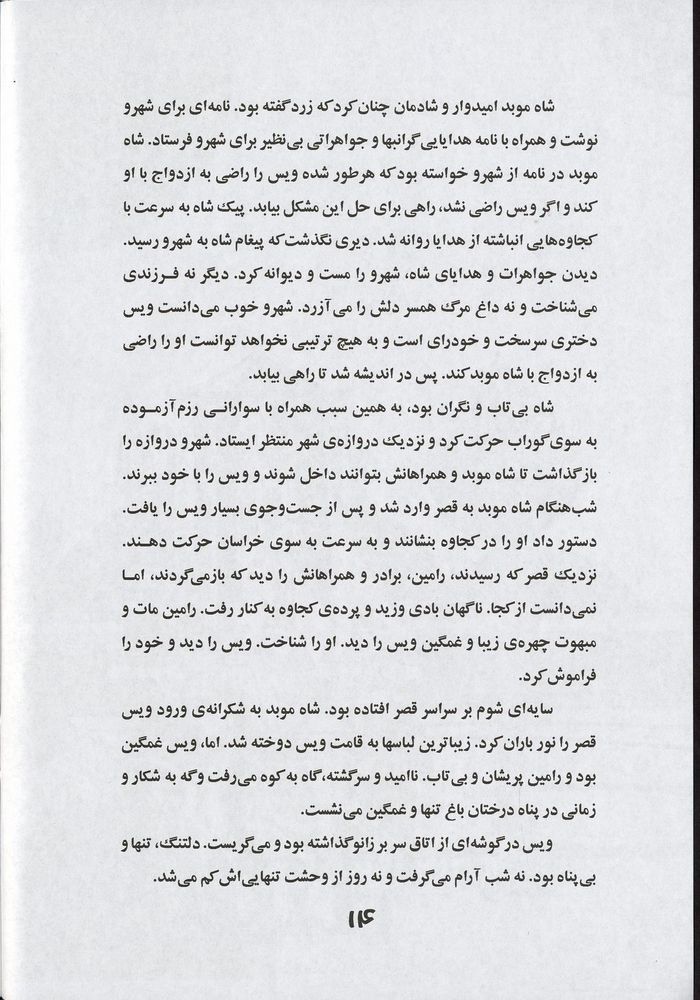 شاه موبد امیدوار و شادمان چنان کرد که زرد گفته بود. نامه‌ای برای شهرو
نوشت و همراه با نامه هدایایی گرانبها و جواهراتی بی‌نظیر برای شهرو فرستاد. شاه
موبد در نامه از شهرو خواسته بود که هرطور شده ویس را راضی به ازدواج با او
کند و اگر ویس راضی نشد، راهی برای حل این مشکل بیابد. پیک شاه به سرعت با
کجاوه‌هایی انباشته از هدایا روانه شد. دیری نگذشت که پیغام شاه به شهرو رسید.
دیدن جواهرات و هدایای شاه، شهرو را مست و دیوانه کرد. دیگر نه فرزندی
می‌شناخت و نه داغ مرگ همسر دلش را می‌آزرد. شهرو خوب می‌دانست ویس
دختری سرسخت و خودرای است و به هیچ ترتیبی نخواهد توانست او را راضی
به ازدواج با شاه موبد کند. پس در اندیشه شد تا راهی بیابد.
شاه بی‌تاب و نگران بود، به همین سبب همراه با سوارانی رزم‌آزموده
به سوی گوراب حرکت کرد و نزدیک دروازه‌ی شهر منتظر ایستاد. شهرو دروازه را
باز گذاشت تا شاه موبد و همراهانش بتوانند داخل شوند و ویس را با خود ببرند.
شب‌هنگام شاه موبد به قصر وارد شد و پس از جست‌وجوی بسیار ویس را یافت.
دستور داد او را در کجاوه بنشانند و به سرعت به سوی خراسان حرکت دهند.
نزدیک قصر که رسیدند، رامین، برادر و همراهانش را دید که بازمی‌گردند، اما
نمی‌دانست از کجا. ناگهان بادی وزید و پرده‌ی کجاوه به کنار رفت. رامین مات و
مبهوت چهره‌ی زیبا و غمگین ویس را دید. او را شناخت. ویس را دید و خود را
فراموش کرد.
سایه‌ای شوم بر سراسر قصر افتاده بود. شاه موبد به شکرانه‌ی ورود ویس
قصر را نور باران کرد. زیباترین لباسها به قامت ویس دوخته شد. اما، ویس غمگین
بود و رامین پریشان و بی‌تاب. ناامید و سرگشته، گاه به کوه می‌رفت و گه به شکار و
زمانی در پناه درختان باغ تنها و غمگین می‌نشست.
ویس در گوشه‌ای از اتاق سر بر زانو گذاشته بود و می‌گریست. دلتنگ، تنها و
بی‌پناه بود. نه شب آرام می‌گرفت و نه روز از وحشت تنهایی‌اش کم می‌شد.
۱۱۶